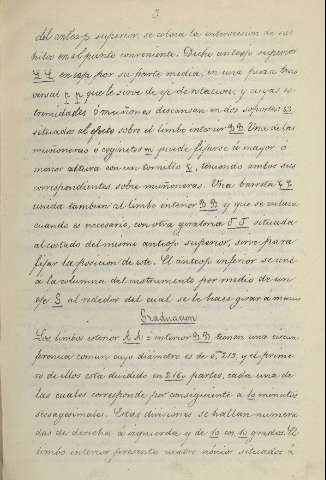 3
del anteojo superior, se coloca la interseccion de sus
hilos en el punto conveniente. Dicho anteojo superior
encaja por su parte media, en una pieza tras
versal p p que le sirve de eje de rotacion, y cuyas es
tremidades ó muñones descansan en dos soportes s s
situados al efecto sobre el limbo interior B B. Una de las
muñoneras ó cojinetes m puede fijarse á mayor ó
menor altura con un tornillo, teniendo ambos sus
correspondientes sobre muñoneras. Una barrita
unida tambien al limbo interior B B y que se enlaza
cuando es necesario, con otra giratoria J J situada
al costado del mismo anteojo superior, sirve para
fijar la posicion de este. El anteojo inferior se une
á la columna del instrumento por medio de un
eje S al rededor del cual se le hace girar á mano
Graduacion
Los limbos exterior A A é interior B B tienen una circun
ferencia comun cuyo diámetro es de 0m 213, y el prime
ro de ellos está dividido en 2160 partes, cada una de
las cuales corresponde por consiguiente á 10 minutos
sexagesimales. Estas divisiones se hallan numera
das de derecha á izquierda y de 10 en 10 grados. El
limbo interior presenta cuatro nónios situados á